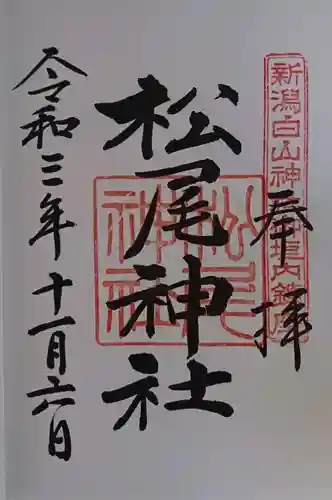 奉拝
新潟白山神社境内鎮座
松尾神社
松尾神社
令和三年十一月六日